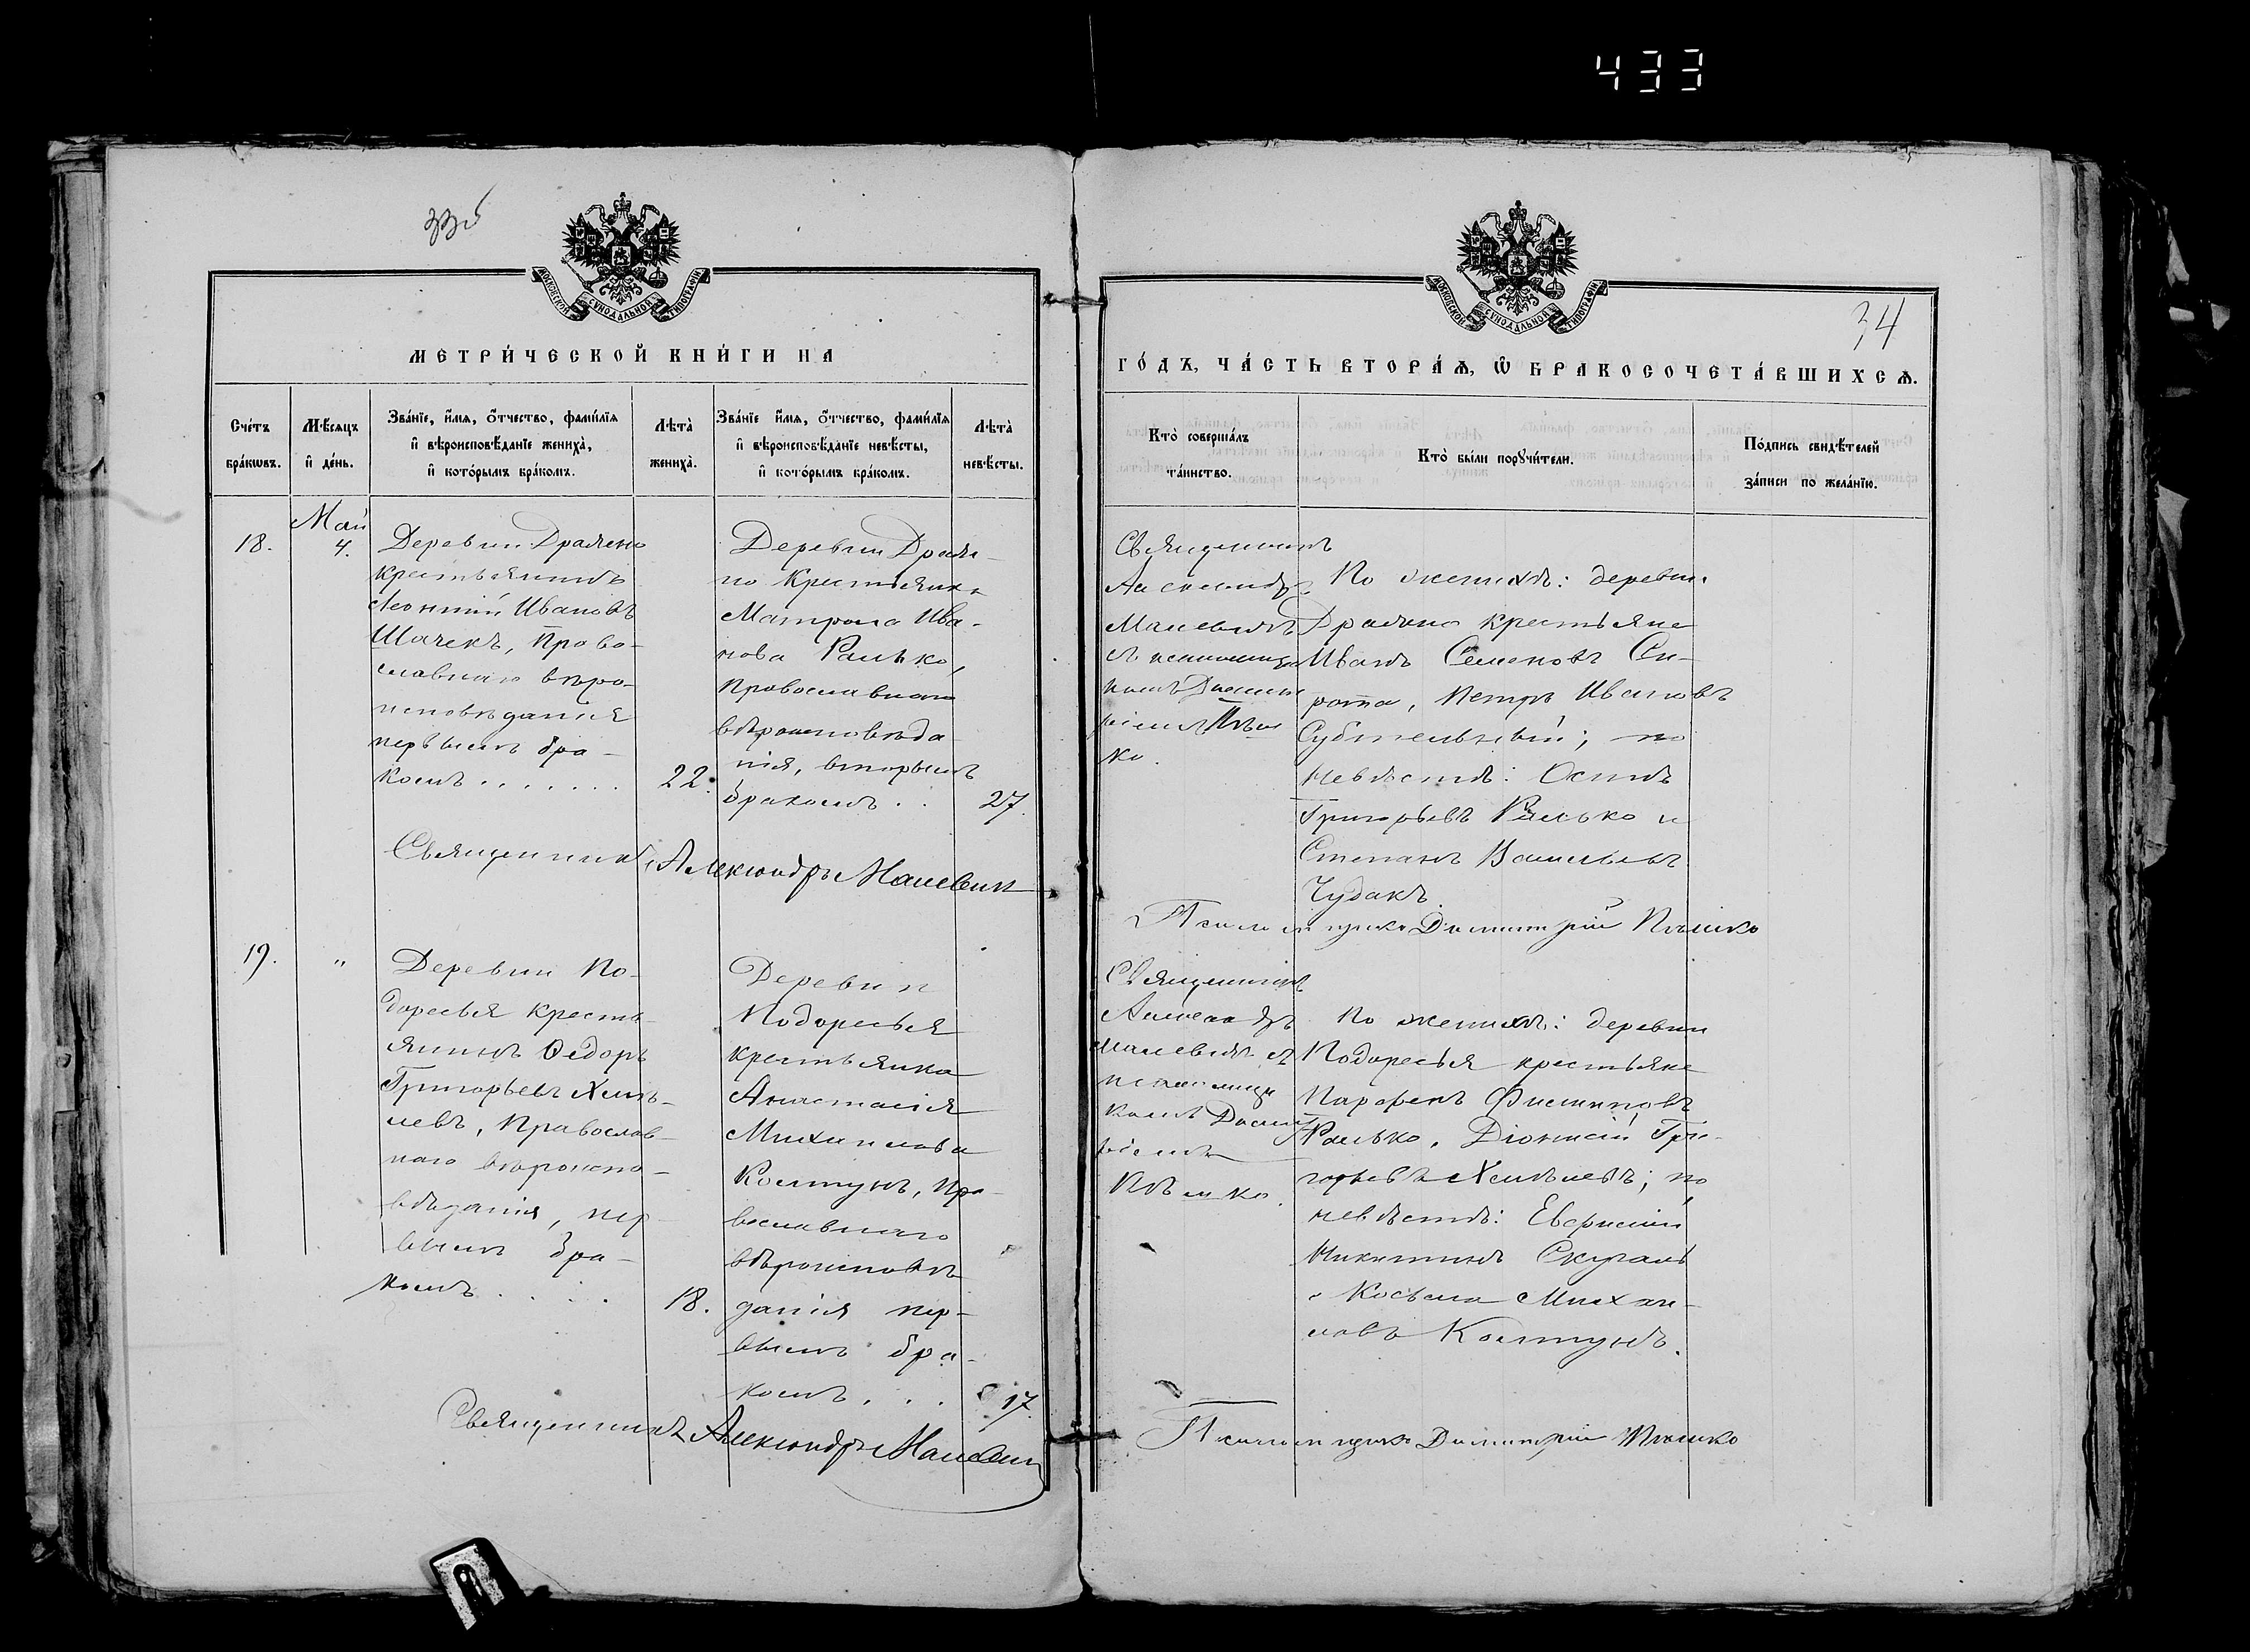 433
34
МОСКОВСКОЙ СѴНОДАЛЬНОЙ ТИПОГРАФІИ
МЕТРИ́ЧЕСКОЙ КНИ́ГИ НА
Сче́тъ бра́кѡвъ.
Мѣ́сяцъ и҆ де́нь.
Зва́нїе, и҆́мѧ, ѻ҆́тчество, фами́лїѧ и҆ вѣроисповѣ́данїе жениха̀, и҆ кото́рымъ бра́комъ.
Лѣ́та жениха̀.
Зва́нїе и҆́мѧ, ѻ҆́тчество, фами́лїѧ и҆ вѣроисповѣ́данїе невѣ́сты, и҆ кото́рымъ бра́комъ.
Лѣ́та невѣ́сты.
18.
Май
4.
Деревни
крестьянинъ
Леонтій Ивановъ
Шачекъ, Право-
славнаго вѣро-
исповѣданія
первымъ бра-
комъ . . . . . . .
22.
Деревни
но крестьянка
Матрона Ива-
нова Ралько,
православнаго
вѣроисповѣда
нія, вторымъ
бракомъ . .
27.
Священникъ Александръ Малевич
19.
„
Деревни По-
доресья кресть-
янинъ Ѳедоръ
Григорьевъ Хмѣ-
левъ, Православ-
наго вѣроиспо-
вѣданія, пер-
вымъ бра-
комъ . . . .
18.
Деревни
Подоресья
крестьянка
Анастасія
Михаилова
Колтунъ, пра-
вославнаго
вѣроисповѣ
данія пер-
вымъ бра-
комъ . . .
17.
Священникъ Александръ Малевич
МОСКОВСКОЙ СѴНОДАЛЬНОЙ ТИПОГРАФІИ
ГО́ДЪ, ЧА́СТЬ ВТОРА́Ѧ, Ѡ҆ БРАКОСОЧЕТА́ВШИХСѦ.
Кто̀ соверша́лъ та́инство.
Кто̀ бы́ли порꙋчи́тели.
По́дпись свидѣ́телей за́писи по жела́нїю.
Священникъ
Александръ
Малевичъ
съ псаломщи
комъ Димит
ріемъ
ко.
По женихѣ: деревни
крестьяне
Иванъ Семеновъ Си-
рота, Петръ Ивановъ
по
невѣстѣ: Осипъ
Григорьевъ Ралько и
Степанъ Васильевъ
Чудакъ.
Псаломщикъ Димитрій
Священникъ
Александръ
Малевичъ съ
псаломщи
комъ Димит
ріемъ
По женихѣ: деревни
Подоресья крестьяне
Парфенъ Филиповъ
Ралько, Діонисій Гри-
горьевъ Хмѣлевъ; по
невѣстѣ:
Никитинъ
и Косьма Михаи-
ловъ Колтунъ.
Псаломщикъ Димитрій